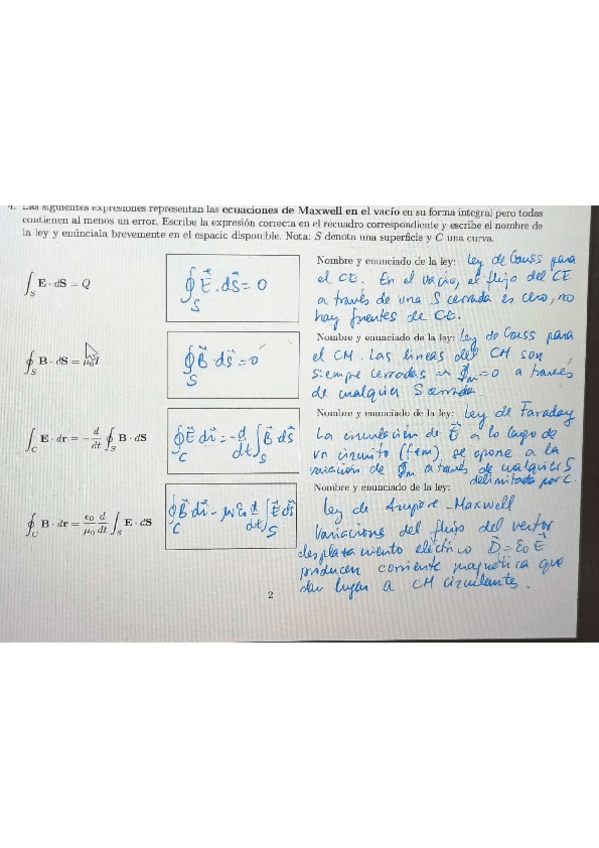 4. Las siguientes expresiones representan las ecuaciones de Maxwell en el vacío en su forma integral pero todas
contienen al menos un error. Escribe la expresión correcta en el recuadro correspondiente y escribe el nombre de
la ley y enúnciala brevemente en el espacio disponible. Nota: S denota una superficie y C una curva.
∫_S E · dS = Q
∮_S E⃗ · dS⃗ = 0
Nombre y enunciado de la ley: Ley de Gauss para
el CE. En el vacío, el flujo del CE
a través de una S cerrada es cero, no
hay fuentes de CE.
∮_S B · dS = μ₀I
∮_S B⃗ dS⃗ = 0
Nombre y enunciado de la ley: Ley de Gauss para
el CM. Las líneas del CM son
siempre cerradas ⇒ ϕm = 0 a través
de cualquier S cerrada.
∫_C E · dr = − d/dt ∮_S B · dS
∮_C E⃗ dr⃗ = − d/dt ∫_S B⃗ dS⃗
Nombre y enunciado de la ley: Ley de Faraday
La circulación de E⃗ a lo largo de
un circuito (fem) se opone a la
variación de ϕm a través de cualquier S
delimitada por C.
∮_C B · dr = ε₀/μ₀ d/dt ∫_S E · dS
∮_C B⃗ dr⃗ = μ₀ε₀ d/dt ∫_S E⃗ dS⃗
Nombre y enunciado de la ley:
Ley de Ampère-Maxwell
Variaciones del flujo del vector
desplazamiento eléctrico D⃗ = ε₀ E⃗
producen corriente magnética que
dan lugar a CM circulantes.
2